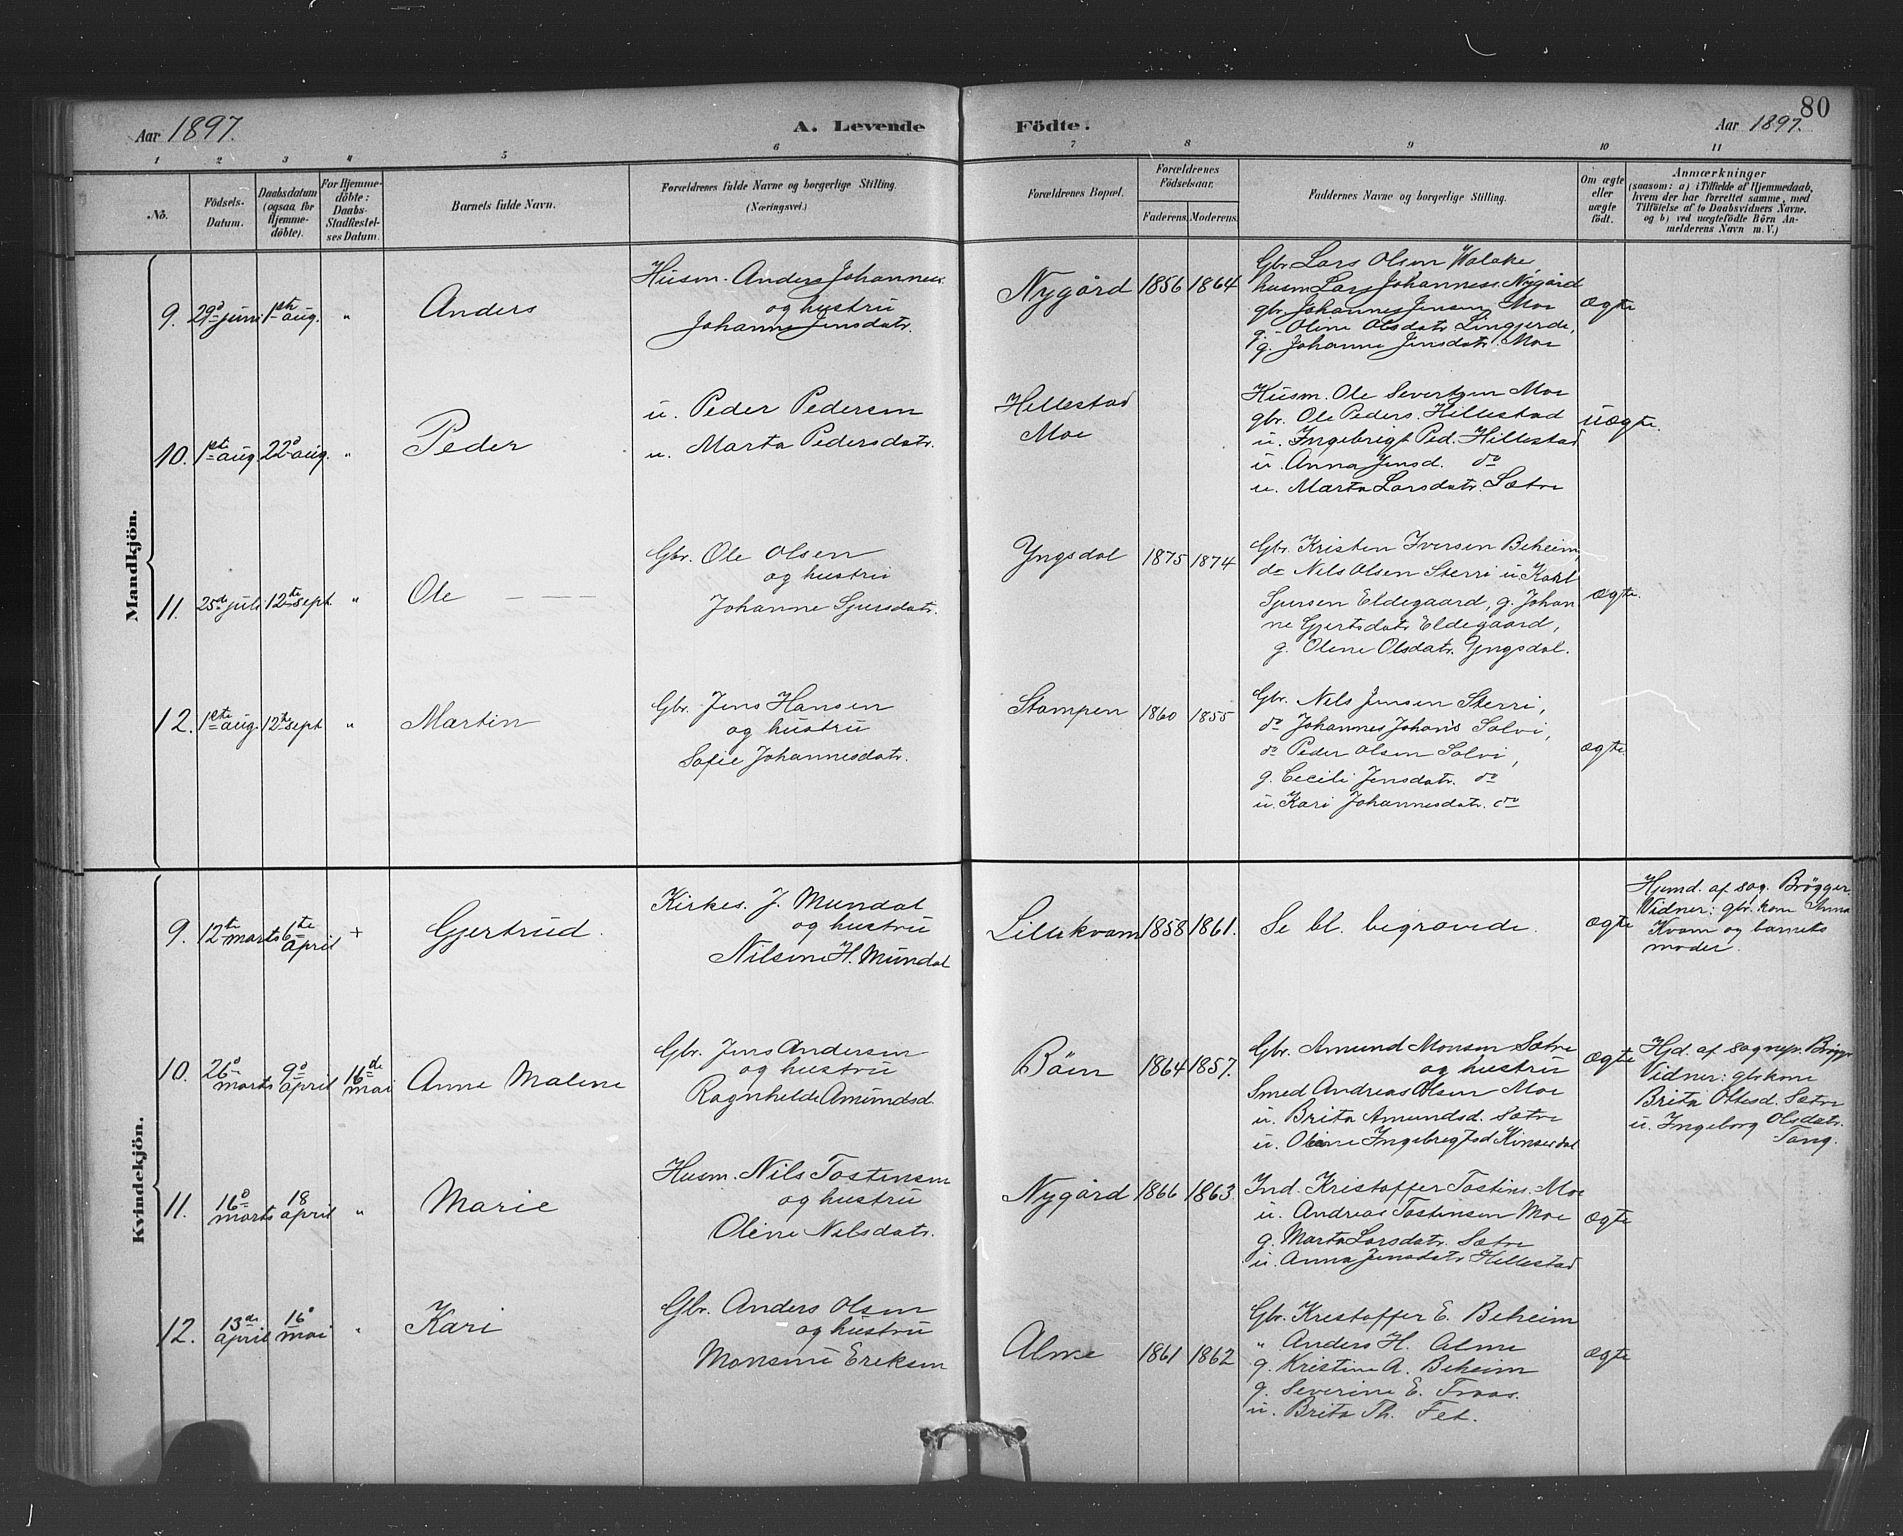 80
Aar 1897. A. Levende Födte. Aar 1897.
1 2 3 4 5 6 7 8 9 10 11
No.
Födsels-
Datum.
Daabsdatum
(ogsaa for
Hjemme-
döbte).
For Hjemme-
döbte:
Daabs-
Stadfæstel-
ses Datum.
Barnets fulde Navn.
Forældrenes fulde Navne og borgerlige Stilling.
(Næringsvei.)
Forældrenes Bopæl.
Forældrenes
Födselsaar.
Faderens. Moderens.
Faddernes Navne og borgerlige Stilling.
Om ægte
eller
uægte
födt.
Anmærkninger
(saasom: a) i Tilfælde af Hjemmedaab,
hvem der har forrettet samme, med
Tilföielse af to Daabsvidners Navne.
og b) ved uægtefödte Börn An-
melderens Navn m. V.)
Mandkjön.
9. 29o juni 1ste aug. " Anders
Husm. Anders Johanness.
og hustru
Johanne Jensdatr.
Nygård 1856 1864
Gbr Lars Olsen
husm Lars Johanness. Nygård
gbr. Johannes Jensen Moe
g. Oline Olsdatr Lingjerde,
g. Johanne Jensdatr. Moe
ægte
10. 1ste aug. 22o aug. " Peder
u. Peder Pedersen
u. Marta Pedersdatr.
Hellestad
Moe
Husm. Ole Severtsen Moe
gbr. Ole Peders. Hillestad
u. Ingebrigt Ped. Hillestad
u. Anna Jensd. do
u. Marta Larsdatr. Sætre
uægte.
11. 25de juli 12te sept. " Ole
Gbr. Ole Olsen
og hustru
Johanne Sjursdatr.
Yngsdal 1875 1874
Gbr. Kristen Iversen Beheim
do Nils Olsen Sterri u. Karl
Sjursen Eldegaard, g. Johan
ne Gjertsdatr Eldegaard,
g. Oline Olsdatr. Yngsdal.
ægte.
12. 1ste aug. 12te sept " Martin
Gbr. Jens Hansen
og hustru
Sofie Johannesdatr.
Stampen 1860 1855
Gbr. Nils Jensen Sterri,
do Johannes Johans Solvi,
do Peder Olsen Solvi,
g. Cecili Jensdatr. do
u. Kari Johannesdatr. do
ægte.
Kvindekjön.
9. 12te marts 6te april + Gjertrud.
Kirkes. J. Mundal
og hustru
Nilsine H. Mundal
Lillekvam 1858 1861.
Se bl. begravede.
ægte
Hjemd. af sog. Brøgger
Vidner: gbr. kone Anna
Kvam og barnets
moder.
10. 26o marts 9o april 16de mai Anne Maline
Gbr. Jens Andersen
og hustru
Ragnhelde Amundsd.
Böen 1864 1857.
Gbr. Amund Monsen Sætre
og hustru
Smed Andreas Olsen Moe
u. Brita Amundsd. Sætre
u. Oline Ingebregtsd
ægte
Hjd. af sognepr. Brøgger
Vidner: gbrkone
Brita Sætre
u. Ingeborg Olsdatr.
Tang.
11. 16o marts 18 april " Marie
Husm. Nils Tostensen
og hustru
Oline Nilsdatr.
Nygård 1866 1863.
Ind. Kristoffer Tostens. Moe
u. Andreas Tostensen Moe
g. Marta Larsdatr. Sætre
u. Anna Jensdatr Hellestad
ægte
12. 13de april 16o mai " Kari
Gbr. Anders Olsen
og hustru
Monsine Ereksen
Alme 1861 1862
Gbr. Krestoffer E. Beheim
" Anders H. Alme
g. Kristine A. Beheim
g. Severine E.
u. Brita Th. Fet.
ægte